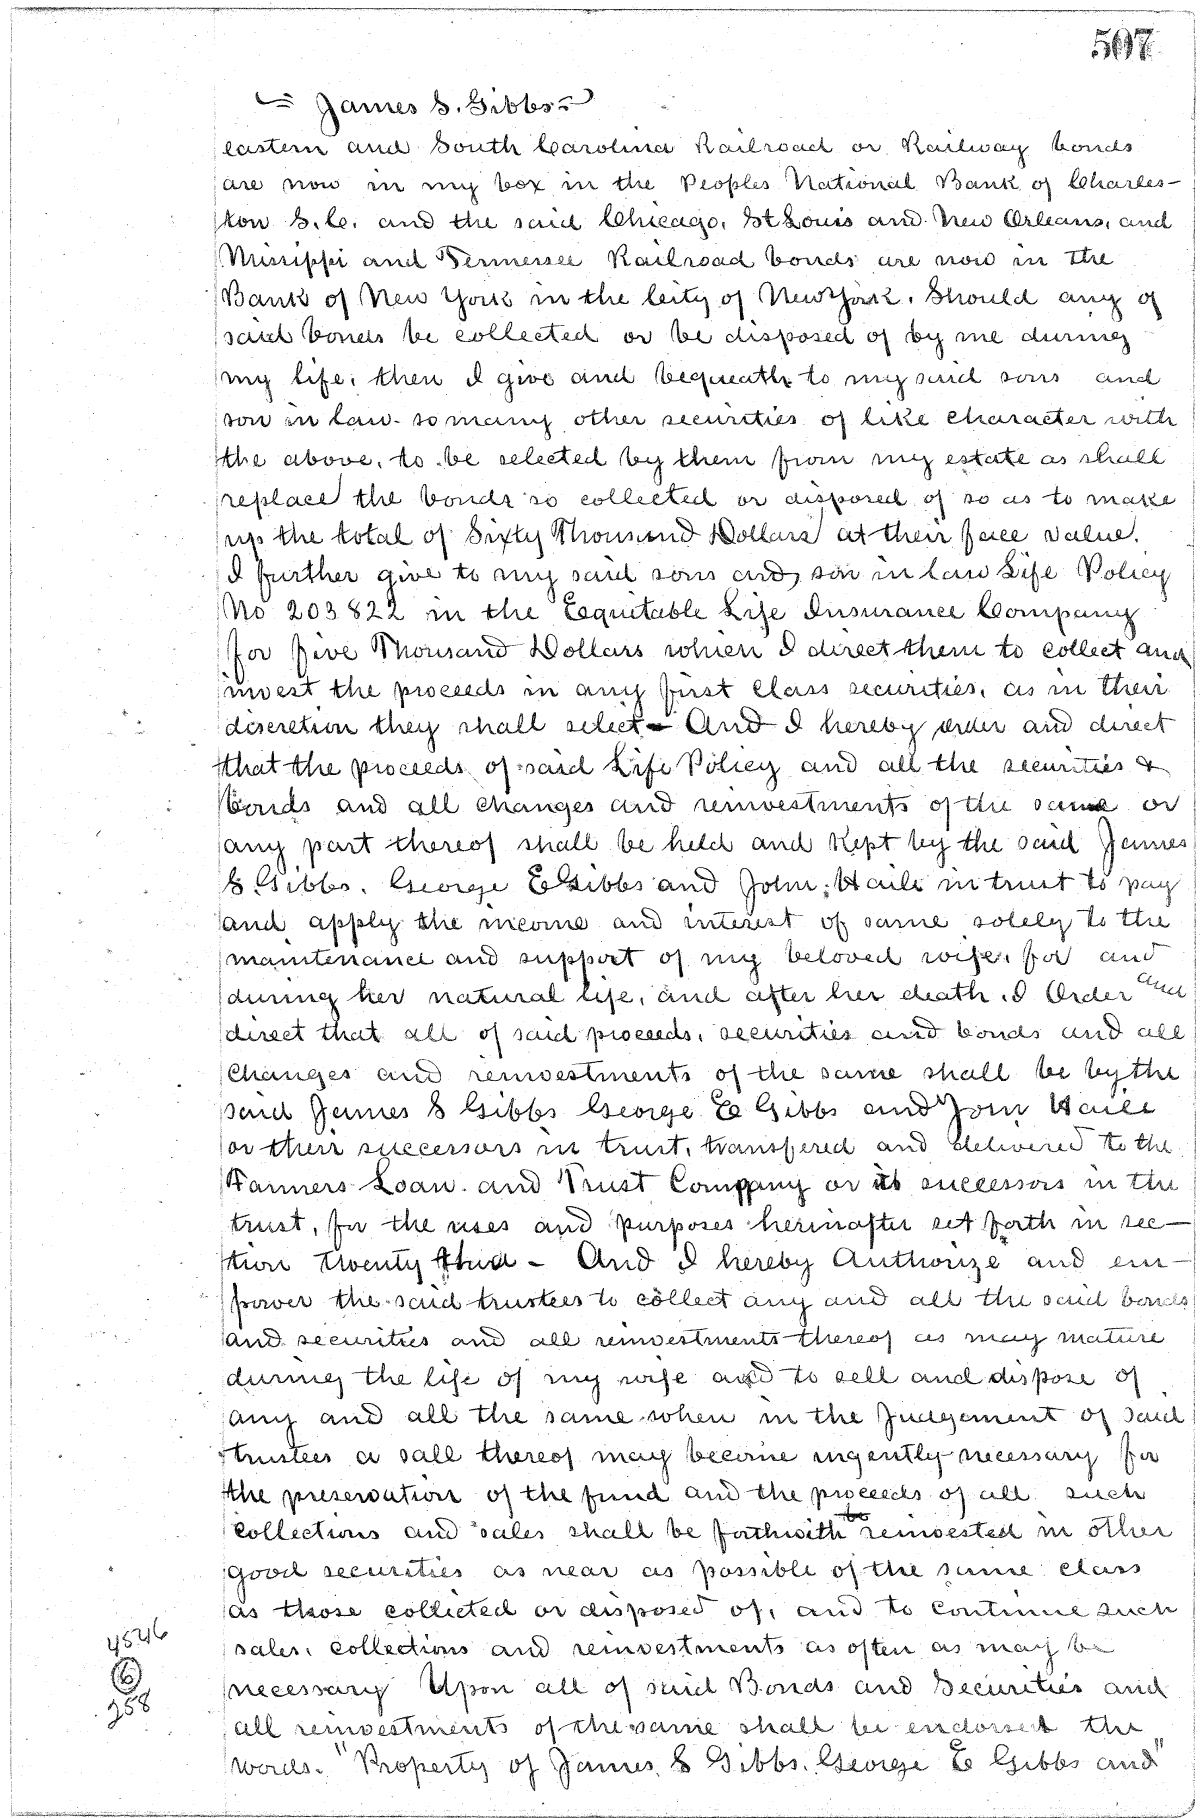 507
James S. Gibbs
eastern and South Carolina Railroad or Railway bonds
are now in my box in the Peoples National Bank of Charles-
ton S.C. and the said Chicago, St Louis and New Orleans, and
Missippi and Tennessee Railroad bonds are now in the
Bank of New York in the City of New York. Should any of
said bonds be collected or be disposed of by me during
my life, then I give and bequeath to my said sons and
son in law so many other securities of like character with
the above, to be selected by them from my estate as shall
replace the bonds so collected or disposed of so as to make
up the total of Sixty Thousand Dollars at their face value.
I further give to my said sons and son in law Life Policy
No 203822 in the Equitable Life Insurance Company
for five Thousand Dollars which I direct them to collect and
invest the proceeds in any first class securities, as in their
discretion they shall select - And I hereby order and direct
that the proceeds of said Life Policy and all the securities &
bonds and all changes and reinvestments of the same or
any part thereof shall be held and kept by the said James
S. Gibbs, George E Gibbs and John Haile in trust to pay
and apply the income and interest of same solely to the
maintenance and support of my beloved wife, for and
during her natural life, and after her death, I Order and
direct that all of said proceeds, securities and bonds and all
changes and reinvestments of the same shall be by the
said James S Gibbs George E Gibbs and John Haile
or their successors in trust, transfered and delivered to the
Farmers Loan and Trust Company or its successors in the
trust, for the uses and purposes herinafter set forth in sec-
tion twenty third - And I hereby Authorize and em-
power the said trustees to collect any and all the said bonds
and securities and all reinvestments thereof as may mature
during the life of my wife and to sell and dispose of
any and all the same when in the Judgement of said
trustees a sall thereof may become urgently necessary for
the preservation of the fund and the proceeds of all such
collections and sales shall be forthwith be reinvested in other
good securities as near as possible of the same class
as those collected or disposed of, and to continue such
sales, collections and reinvestments as often as may be
necessary Upon all of said Bonds and Securities and
all reinvestments of the same shall be endorsed the
words. "Property of James S Gibbs, George E Gibbs and"
4546
6
258